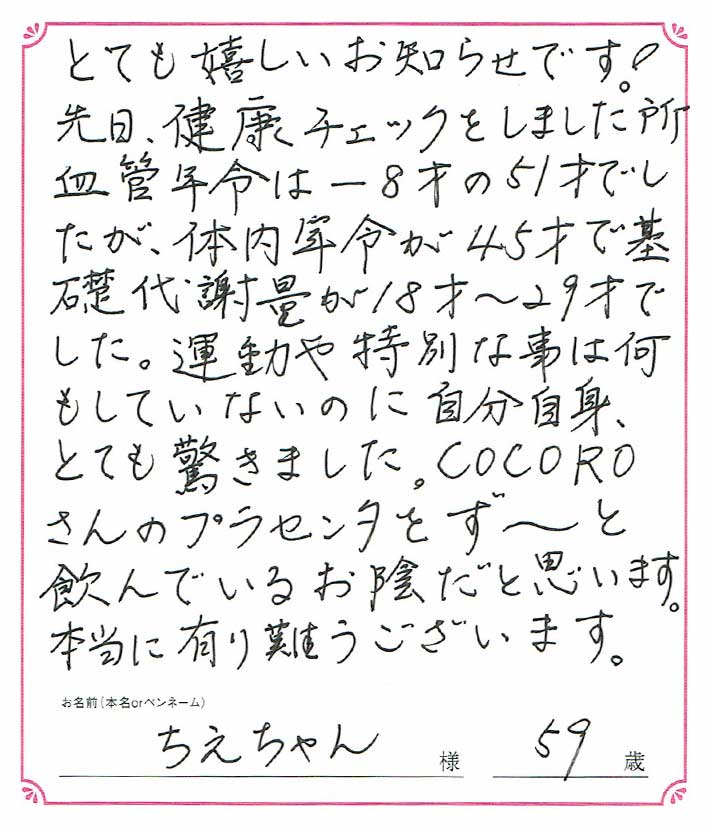 とても嬉しいお知らせです。!
先日、健康チェックをしました所
血管年令は－8才の51才でし
たが、体内年令が45才で基
礎代謝量が18才〜29才で
した。運動や特別な事は何
もしていないのに自分自身、
とても驚きました。COCORO
さんのプラセンタをず〜と
飲んでいるお陰だと思います。
本当に有り難うございます。
お名前(本名orペンネーム)
ちえちゃん 様 59 歳